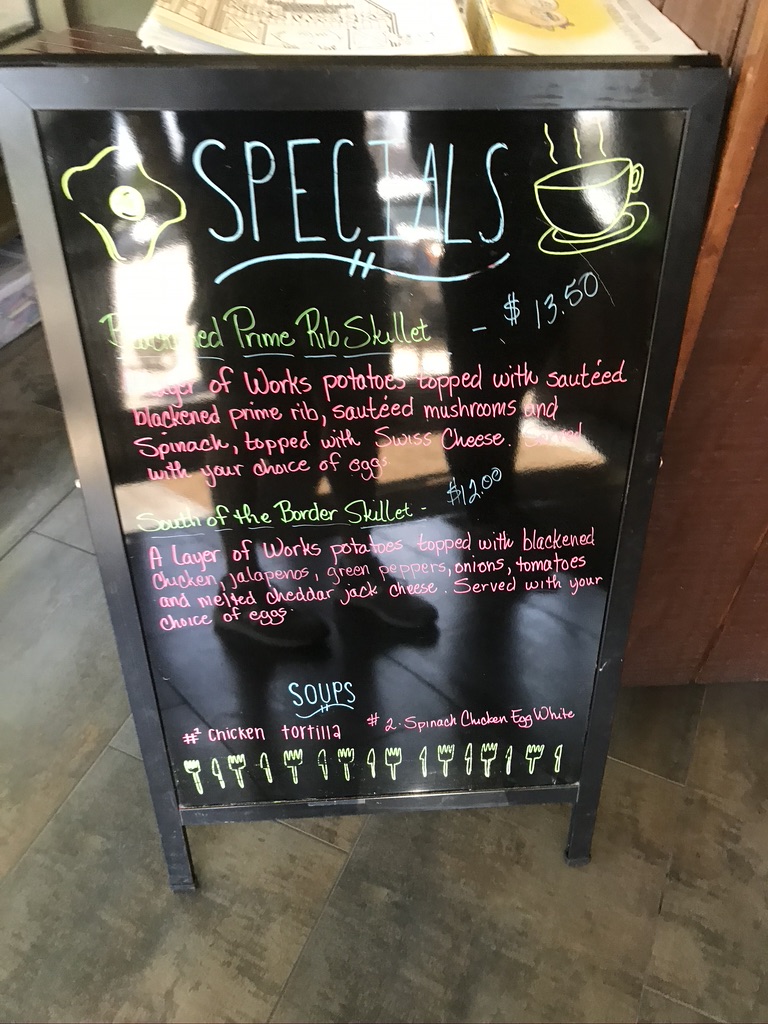 SPECIALS
Blackened Prime Rib Skillet - $ 13.50
A Layer of Works potatoes topped with sautéed
blackened prime rib, sautéed mushrooms and
Spinach, topped with Swiss Cheese. Served
with your choice of eggs.
South of the Border Skillet - $12.00
A Layer of Works potatoes topped with blackened
chicken, jalapenos, green peppers, onions, tomatoes
and melted cheddar jack cheese. Served with your
choice of eggs.
SOUPS
#1 Chicken tortilla #2. Spinach Chicken Egg White